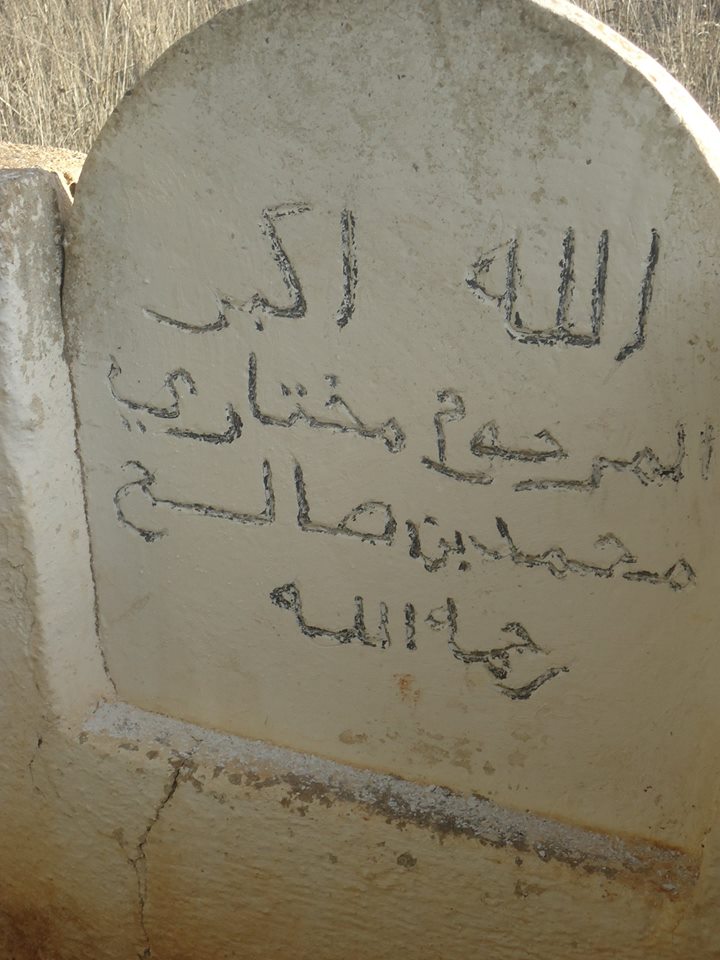 الله اكبر
المرحوم مختاري
محمد بن صالح
رحمه الله